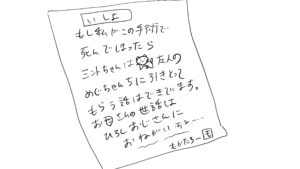 いしょ
もし私がこの手術で
死んでしまったら
ミントちゃんは友人の
めぐちゃんちに引きとって
もらう話はできてます。
お母さんの世話は
ひろしおじさんに
おねがいちょ…
もがたろー